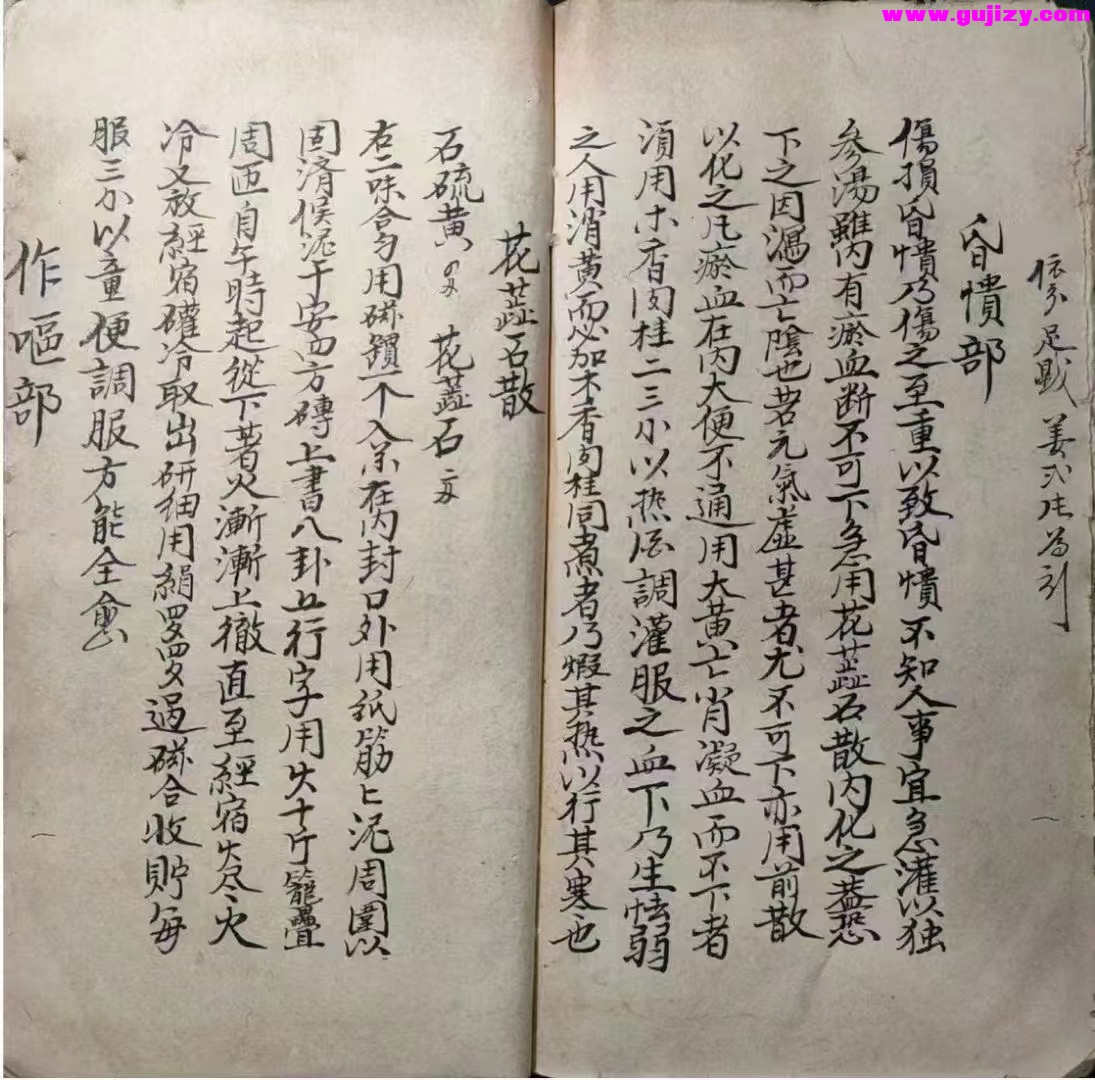 www.gujizy.com
足戥 姜 為引
昏憒部
傷損昏憒乃傷之至重以致昏憒不知人事宜急灌以独
参湯雖內有瘀血断不可下急用花蕋石散內化之蓋恐
下之因瀉而亡陰也若元氣虛甚者尤不可下亦用前散
以化之凡瘀血在內大便不通用大黃亡肖凝血而不下者
須用木香肉桂二三小以热酒調灌服之血下乃生怯弱
之人用消黃而必加木香肉桂同煮者乃煆其热以行其寒也
花蕋石散
石硫黄 花蕋石
右二味合匀用磁鑵一个入药在內封口外用纸筋匕泥周圍以
固濟候泥干安四方磚上書八卦五行字用火十斤籠疊
周匝自午時起從下著火漸漸上徹直至經宿火尽火
冷又放經宿礶冷取出研细用絹罗罗過磁合收貯每
服三小以童便調服方能全愈
作嘔部